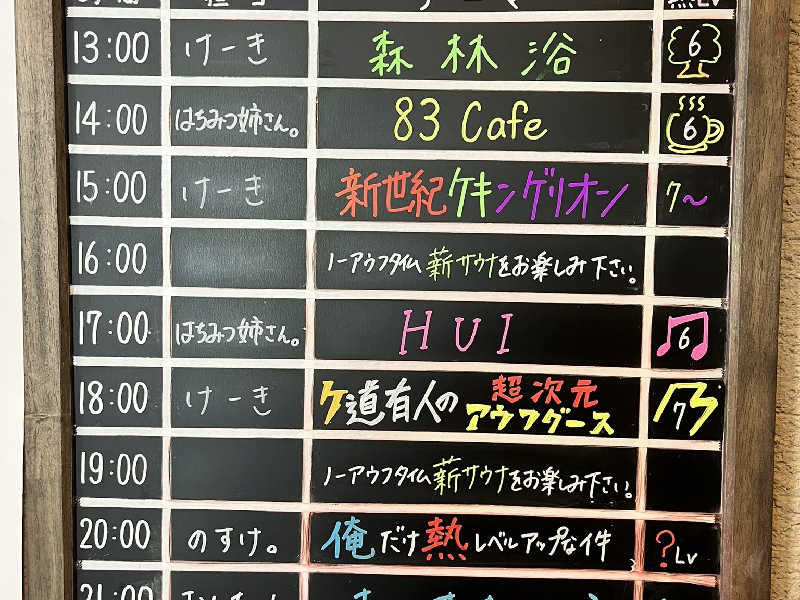 13:00 けーき 森林浴 6
14:00 はちみつ姉さん。 83 Cafe 6
15:00 けーき 新世紀ケキングリオン 7〜
16:00 ノーアウフタイム 薪サウナをお楽しみ下さい。
17:00 はちみつ姉さん。 HUI 6
18:00 けーき ケ道有人の 超次元アウフグース 7
19:00 ノーアウフタイム 薪サウナをお楽しみ下さい。
20:00 のすけ。 俺だけ熱レベルアップな件 ?Lv
21:00